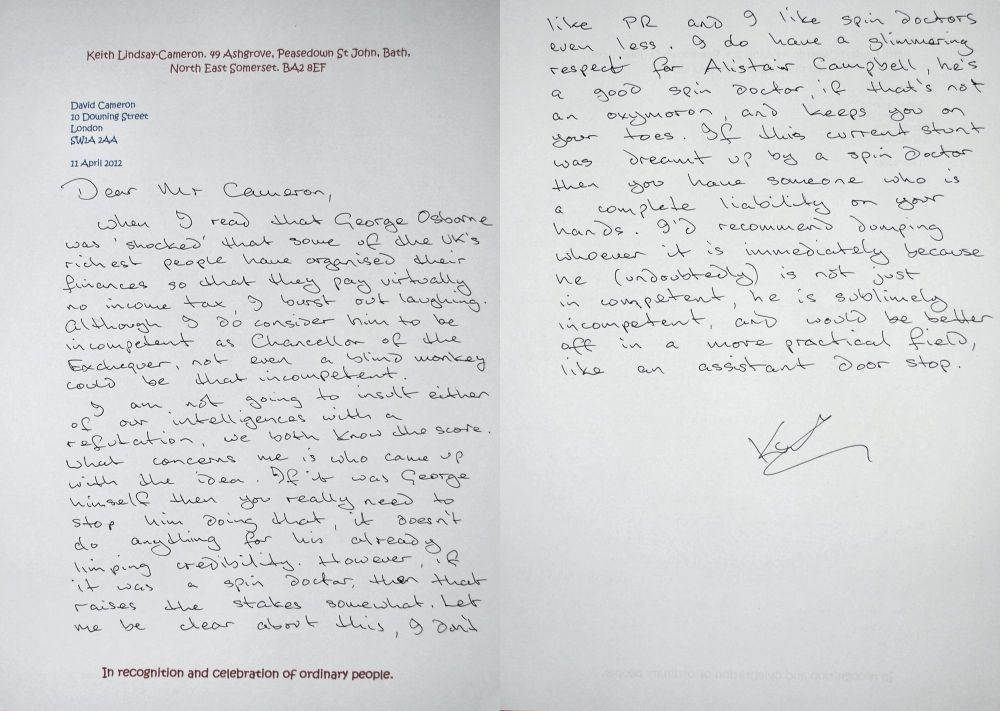 Keith Lindsay-Cameron. 99 Ashgrove, Peasedown St John, Bath,
North East Somerset. BA2 8EF
David Cameron
10 Downing Street
London
SW1A 2AA
11 April 2012
Dear Mr Cameron,
When I read that George Osborne
was 'shocked' that some of the UK's
richest people have organised their
finances so that they pay virtually
no income tax, I burst out laughing.
Although I do consider him to be
incompetent as Chancellor of the
Exchequer, not even a blind monkey
could be that incompetent.
I am not going to insult either
of our intelligences with a
refutation, we both know the score.
What concerns me is who came up
with the idea. If it was George
himself then you really need to
stop him doing that, it doesn't
do anything for his already
limping credibility. However, if
it was a spin doctor, then that
raises the stakes somewhat. Let
me be clear about this, I don't
In recognition and celebration of ordinary people.
like PR and I like spin doctors
even less. I do have a glimmering
respect for Alistair Campbell, he's
a good spin doctor, if that's not
an oxymoron, and keeps you on
your toes. If this current stunt
was dreamt up by a spin doctor
then you have someone who is
a complete liability on your
hands. I'd recommend dumping
whoever it is immediately because
he (undoubtedly) is not just
incompetent, he is sublimely
incompetent, and would be better
off in a more practical field,
like an assistant door stop.